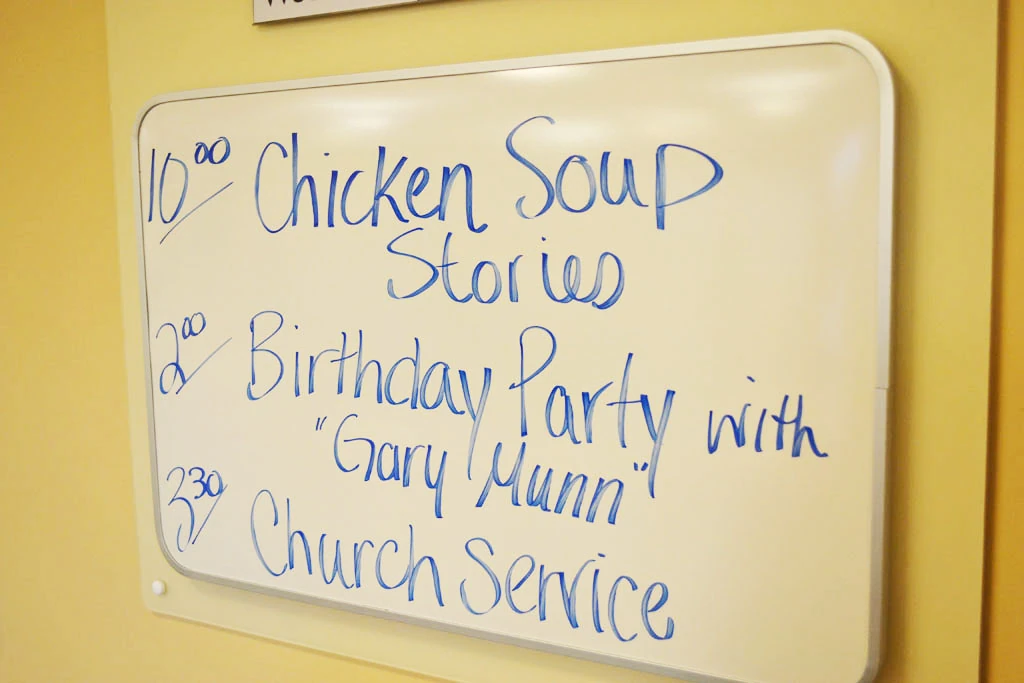 10 00 Chicken Soup
Stories
2 00 Birthday Party with
"Gary Munn"
3 30 Church Service